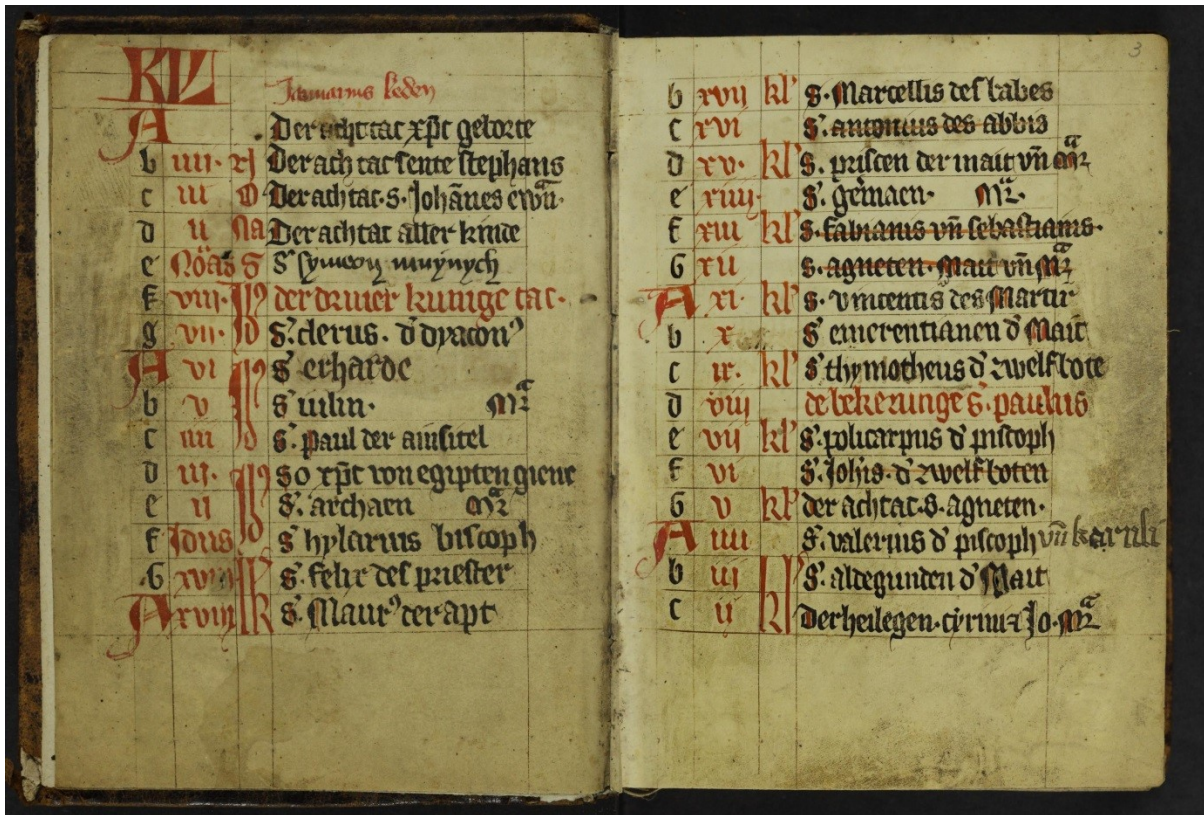 KL
Januarius leden
A Der achttac xp̄c geborte
b iiii· Der achtac sente stephans
c iii Der achtac·s·Johānes ewn̄·
d ii Na Der achtac aller kinde
e Nōas S symeon
f viii· der drier kunige tac·
g vii· Jd S· clerus· d dyacon⁹
A vi S erharde
b v S uilin· Mr̄a
c iiii Jd S· paul der ainsitel
d iii· So xp̄c von egipten giene
e ii S· archaen Mr̄a
f Jdus S hylarius biscoph
G xviiii S· felix des priester
A xviii k S· Maur⁹ der apt
3
b xvii kl' S· Marcellis des babes
c xvi S· antonius des abbis
d xv· kl' S· priscen der mait vn̄ Mr̄a
e xiiii· S· germaen· Mr̄·
f xiii kl' S· fabianus vn̄ sebastianus·
G xii S· agneten· Mait vn̄ Mr̄a
A xi· kl' S· vincentis des Martir
b x S emerentianen d Mait
c ix· kl' S thymotheus d zwelfbote
d viij de bekerunge S· paulus
e vij kl' S· policarpus d piscoph
f vi S· Joh̄is· d zwelfboten
G v kl' der achtac·S·agneten·
A iiii S· valerius d piscoph vn̄ karnli
b iij S· aldegunden d Mait
c ij kl' Der heilegen·cyrini z Jo·Mr̄a